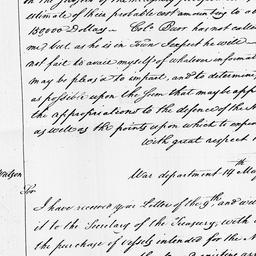 estimate of their probable cost amounting to
130000 Dollars — Colo. Burr has not called
me) but as he is in Town I expect he will
not fail to avail myself of whatever informat
may be pleas'd to impart, and to determine
as possible upon the sum that may be app
the appropriations to the defence of the N
as well as the points upon which to expen
With great respect
War department 14th Ma
Watson
Sir
I have received your Letter of the 9th and
it to the Secretary of the Treasury, with
the purchase of Vessels intended for the N